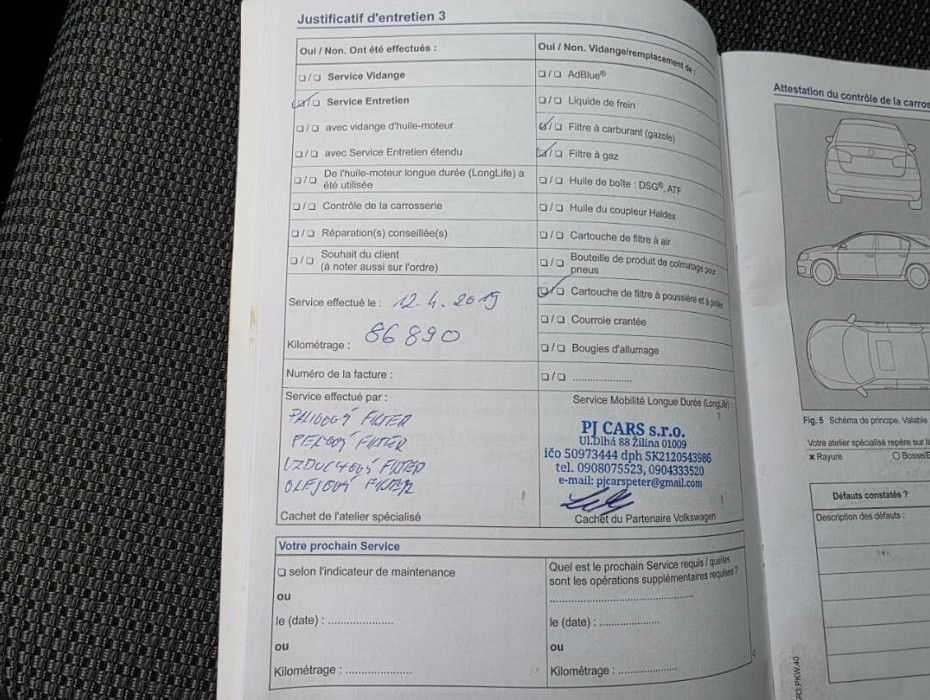 Justificatif d'entretien 3
Oui / Non. Ont été effectués :
❏/❏ Service Vidange
❏/❏ Service Entretien
❏/❏ avec vidange d'huile-moteur
❏/❏ avec Service Entretien étendu
❏/❏ De l'huile-moteur longue durée (LongLife) a
été utilisée
❏/❏ Contrôle de la carrosserie
❏/❏ Réparation(s) conseillée(s)
❏/❏ Souhait du client
(à noter aussi sur l'ordre)
Service effectué le : 12.4.2019
Kilométrage : 86890
Numéro de la facture :
Service effectué par :
PALIVOVÝ FILTER
PEĽOVÝ FILTER
VZDUCHOVÝ FILTER
OLEJOVÝ FILTER
Cachet de l'atelier spécialisé
Oui / Non. Vidange/remplacement de :
❏/❏ AdBlue®
❏/❏ Liquide de frein
❏/❏ Filtre à carburant (gazole)
❏/❏ Filtre à gaz
❏/❏ Huile de boîte : DSG®, ATF
❏/❏ Huile du coupleur Haldex
❏/❏ Cartouche de filtre à air
❏/❏ Bouteille de produit de colmatage pour
pneus
❏/❏ Cartouche de filtre à poussière et à pollen
❏/❏ Courroie crantée
❏/❏ Bougies d'allumage
❏/❏ ....................
Service Mobilité Longue Durée (LongLife)
PJ CARS s.r.o.
Ul.Dlhá 88 Žilina 01009
ičo 50973444 dph SK2120543986
tel. 0908075523, 0904333520
e-mail: pjcarspeter@gmail.com
Cachet du Partenaire Volkswagen
Votre prochain Service
❏ selon l'indicateur de maintenance
ou
le (date) : ....................
ou
Kilométrage : ....................
Quel est le prochain Service requis / quelles
sont les opérations supplémentaires requises ?
..............................................
le (date) : ....................
ou
Kilométrage : ....................
Attestation du contrôle de la carros
Fig. 5 Schéma de principe. Valable
Votre atelier spécialisé repère sur la
× Rayure O Bosse/E
Défauts constatés ?
Description des défauts :
R3.PKW.40